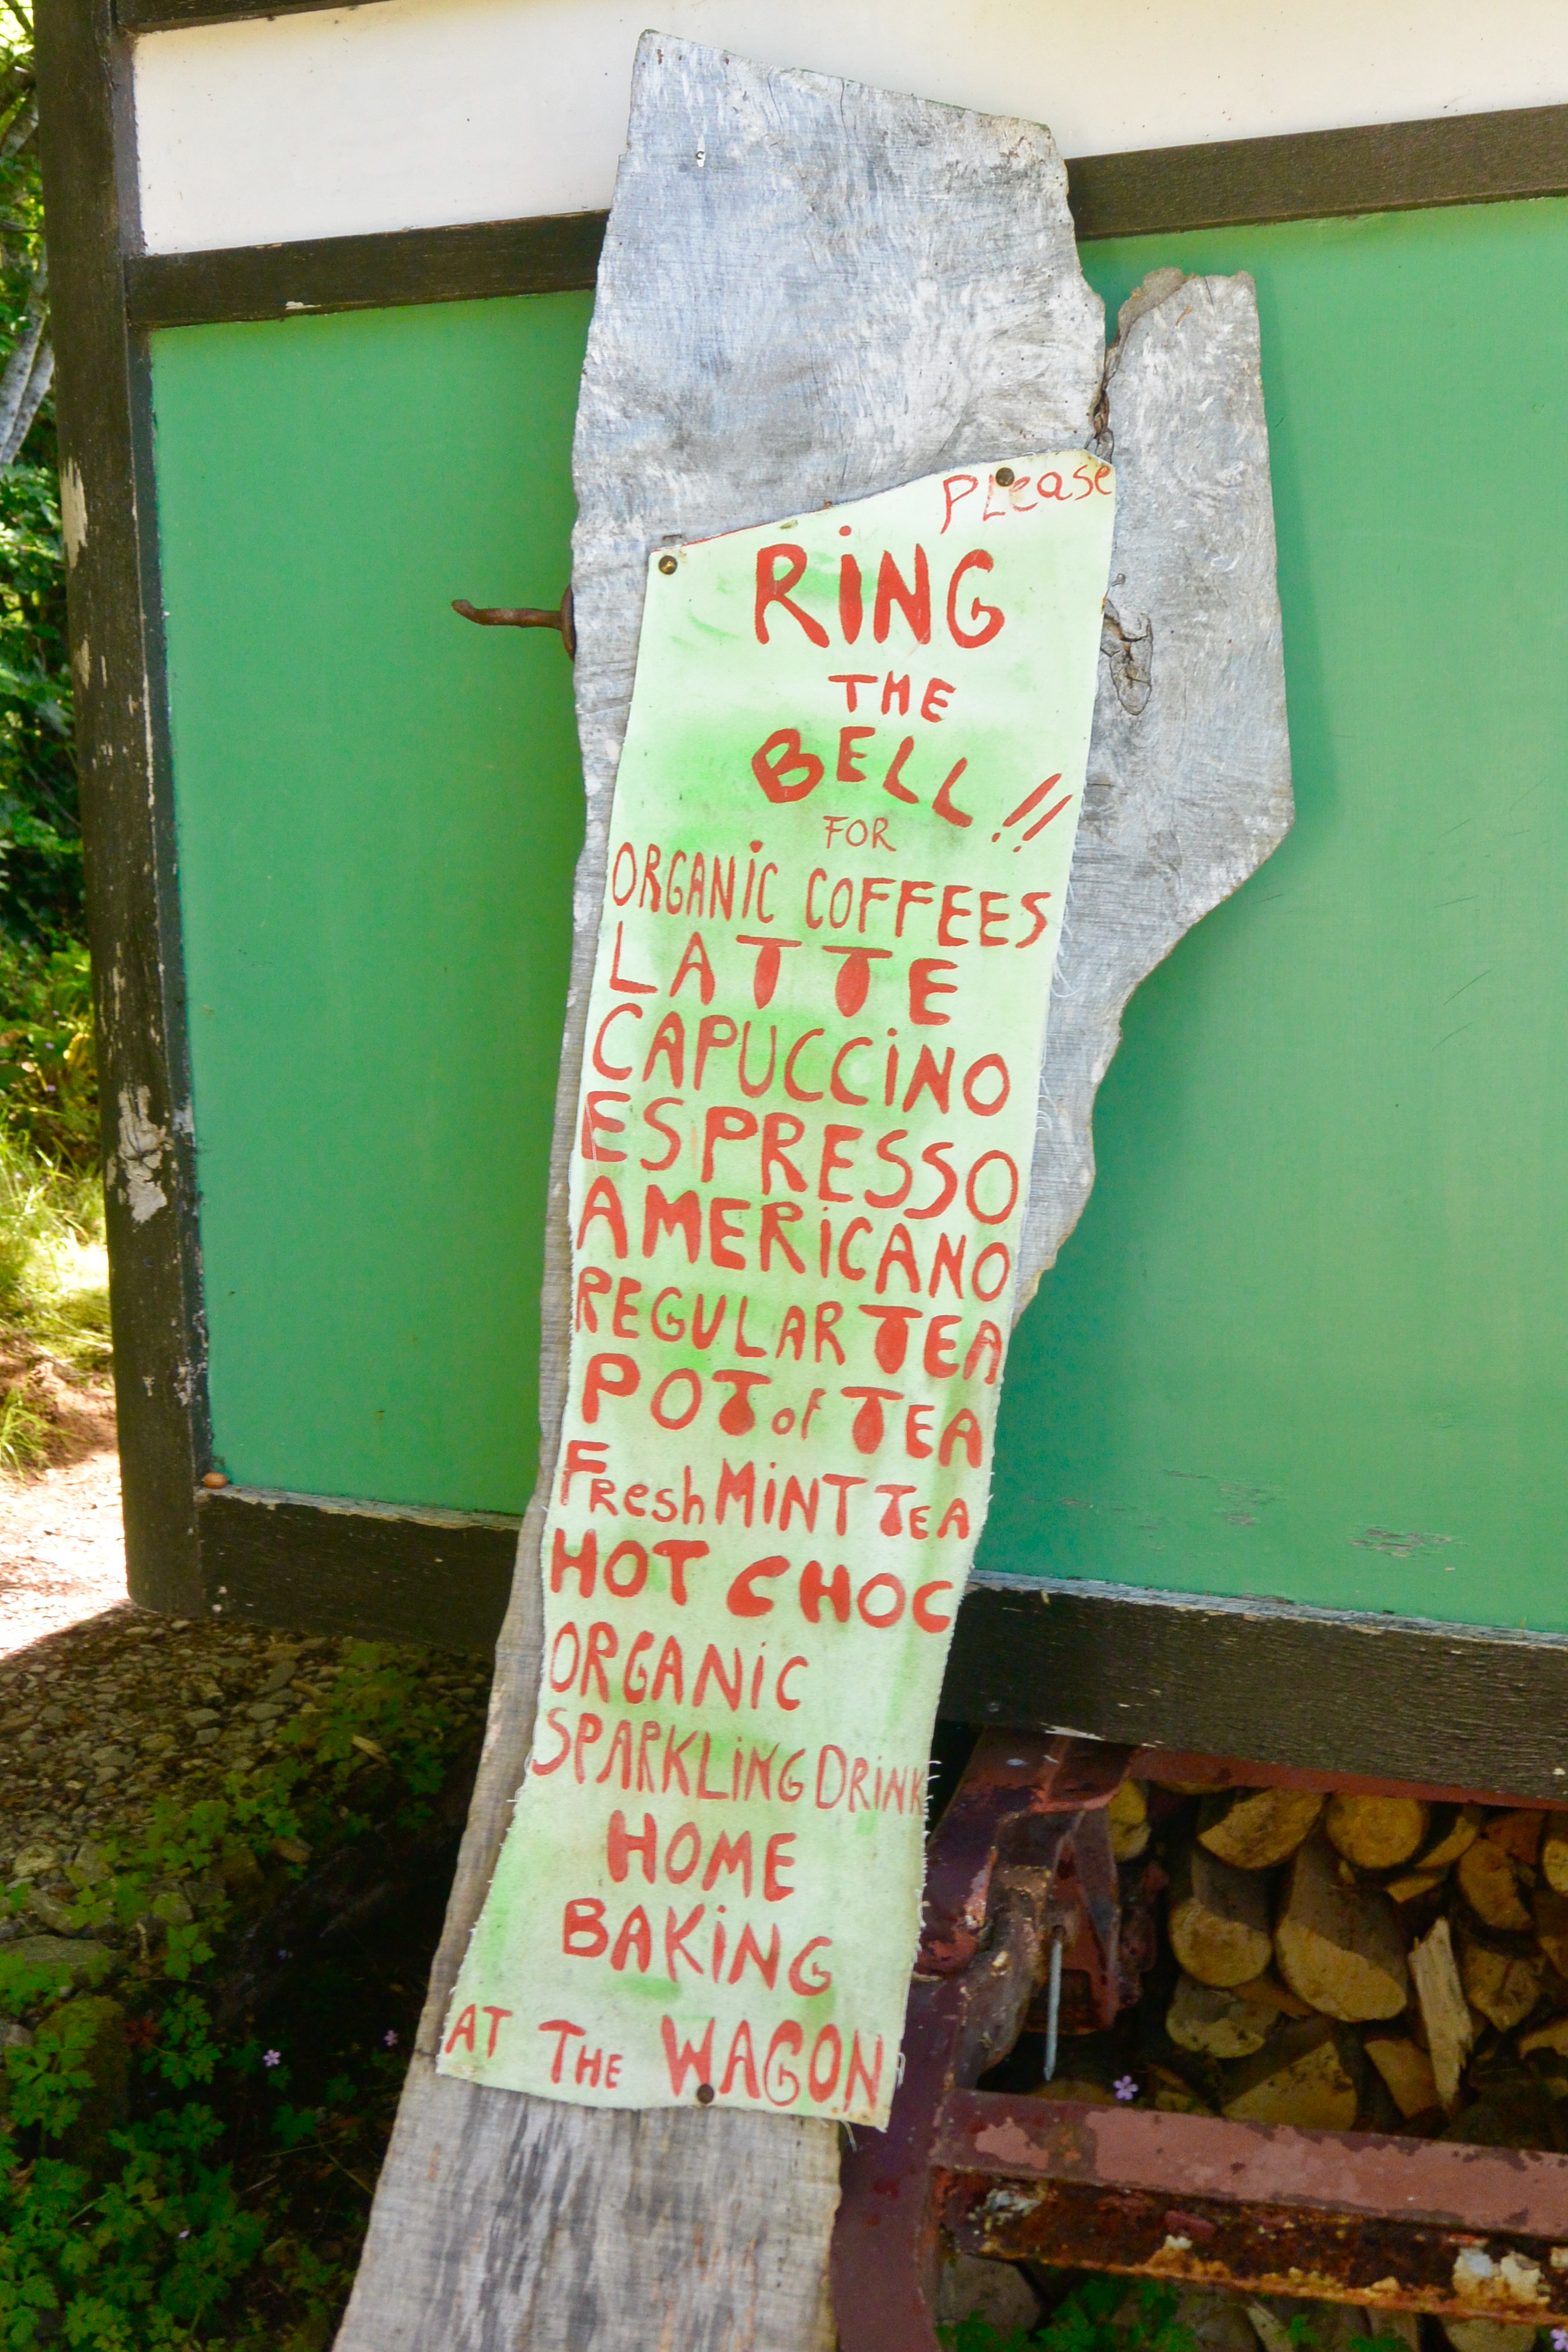 PLease
RiNG
THE
BELL!!
FOR
ORGANiC COFFEES
LATTE
CAPUCCiNO
ESPRESSO
AMERiCANO
REGULAR TEA
POT of TEA
FResh MiNT TEA
HOT CHOC
ORGANiC
SPARKLiNG DRiNK
HOME
BAKiNG
AT THE WAGON